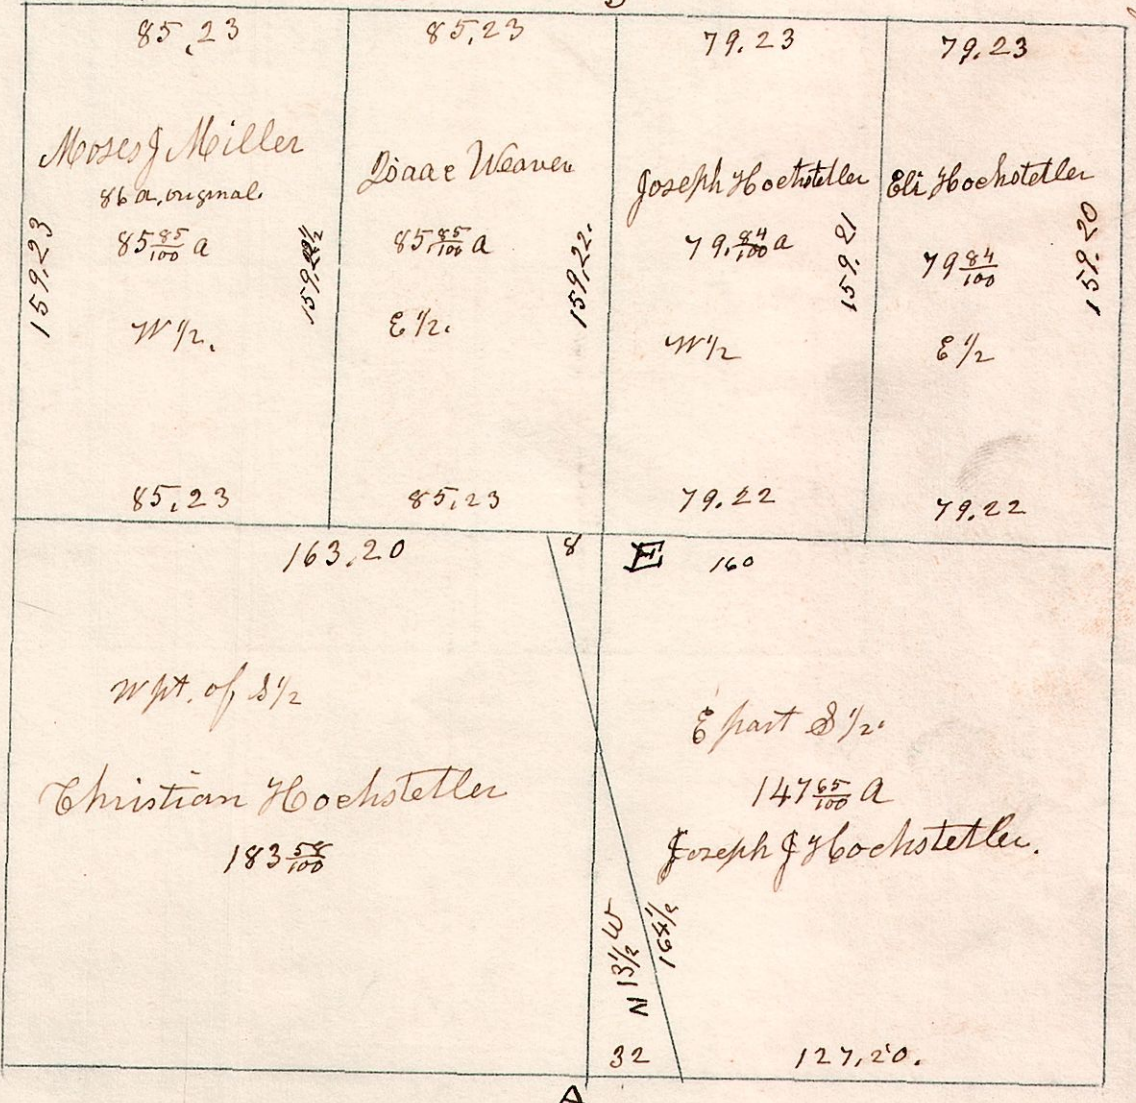 85,23
Moses J Miller
86 a, original.
85 85/100 a
W 1/2.
159.23
85,23
85,23
Isaac Weaver
85 85/100 a
E 1/2.
159,22.
85,23
79.23
Joseph Hochstetler
79. 84/100 a
W 1/2
159.21
79.22
79.23
Eli Hochstetler
79 84/100
E 1/2
159.20
79.22
163,20
8
W pt. of S 1/2
Christian Hochstetler
183 58/100
E
160
E part S 1/2.
147 65/100 a
Joseph J Hochstetler.
N 13 1/2 W
164 1/2
32
127,20.
A